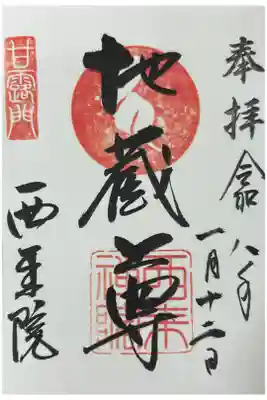 奉拝 令和八年
一月十二日
地蔵尊
甘露門
西来院